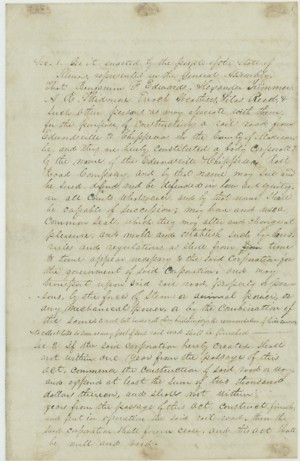 Sec. 1. Be it enacted by the people of the State of
Illinois, represented in the General Assembly,
That Benjamin F Edwards, Alexander
A. C. Enoch Silas Reed, &
Such other persons as may associate with them
for the purpose of constructing a rail road from
Edwardsville to Chippewa in the County of Madison
be, and they are hereby constituted a body Corporate
by the name of the Edwardsville & Chippewa Rail
Road Company, and by that name may sue and
be sued, defend and be defended in law and equity,
in all Courts whatsoever and by that name shall
be capable of succession, may have and use a
Common Seal, which they may alter and change at
pleasure, and make and establish such by-laws
rules and regulations as shall from time
to time appear necessary to the said Corporation for
the government of said Corporation, and may
transport upon said rail road property & per-
sons, by the force of Steam or animal power, or
any mechanical power, or by the Combination of
the same
Sec. 2. If the said Corporation hereby created shall
not within years from the passage of this
Act, commence the Construction of said road & way
and expend at least the sum of two thousand
dollars thereon, and shall not within
years from the passage of this act, construct, finish
and put in operation the said rail road, then the
said corporation shall cease, and this act shall
be null and void.